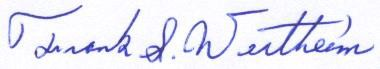 Frank S. Wertheim